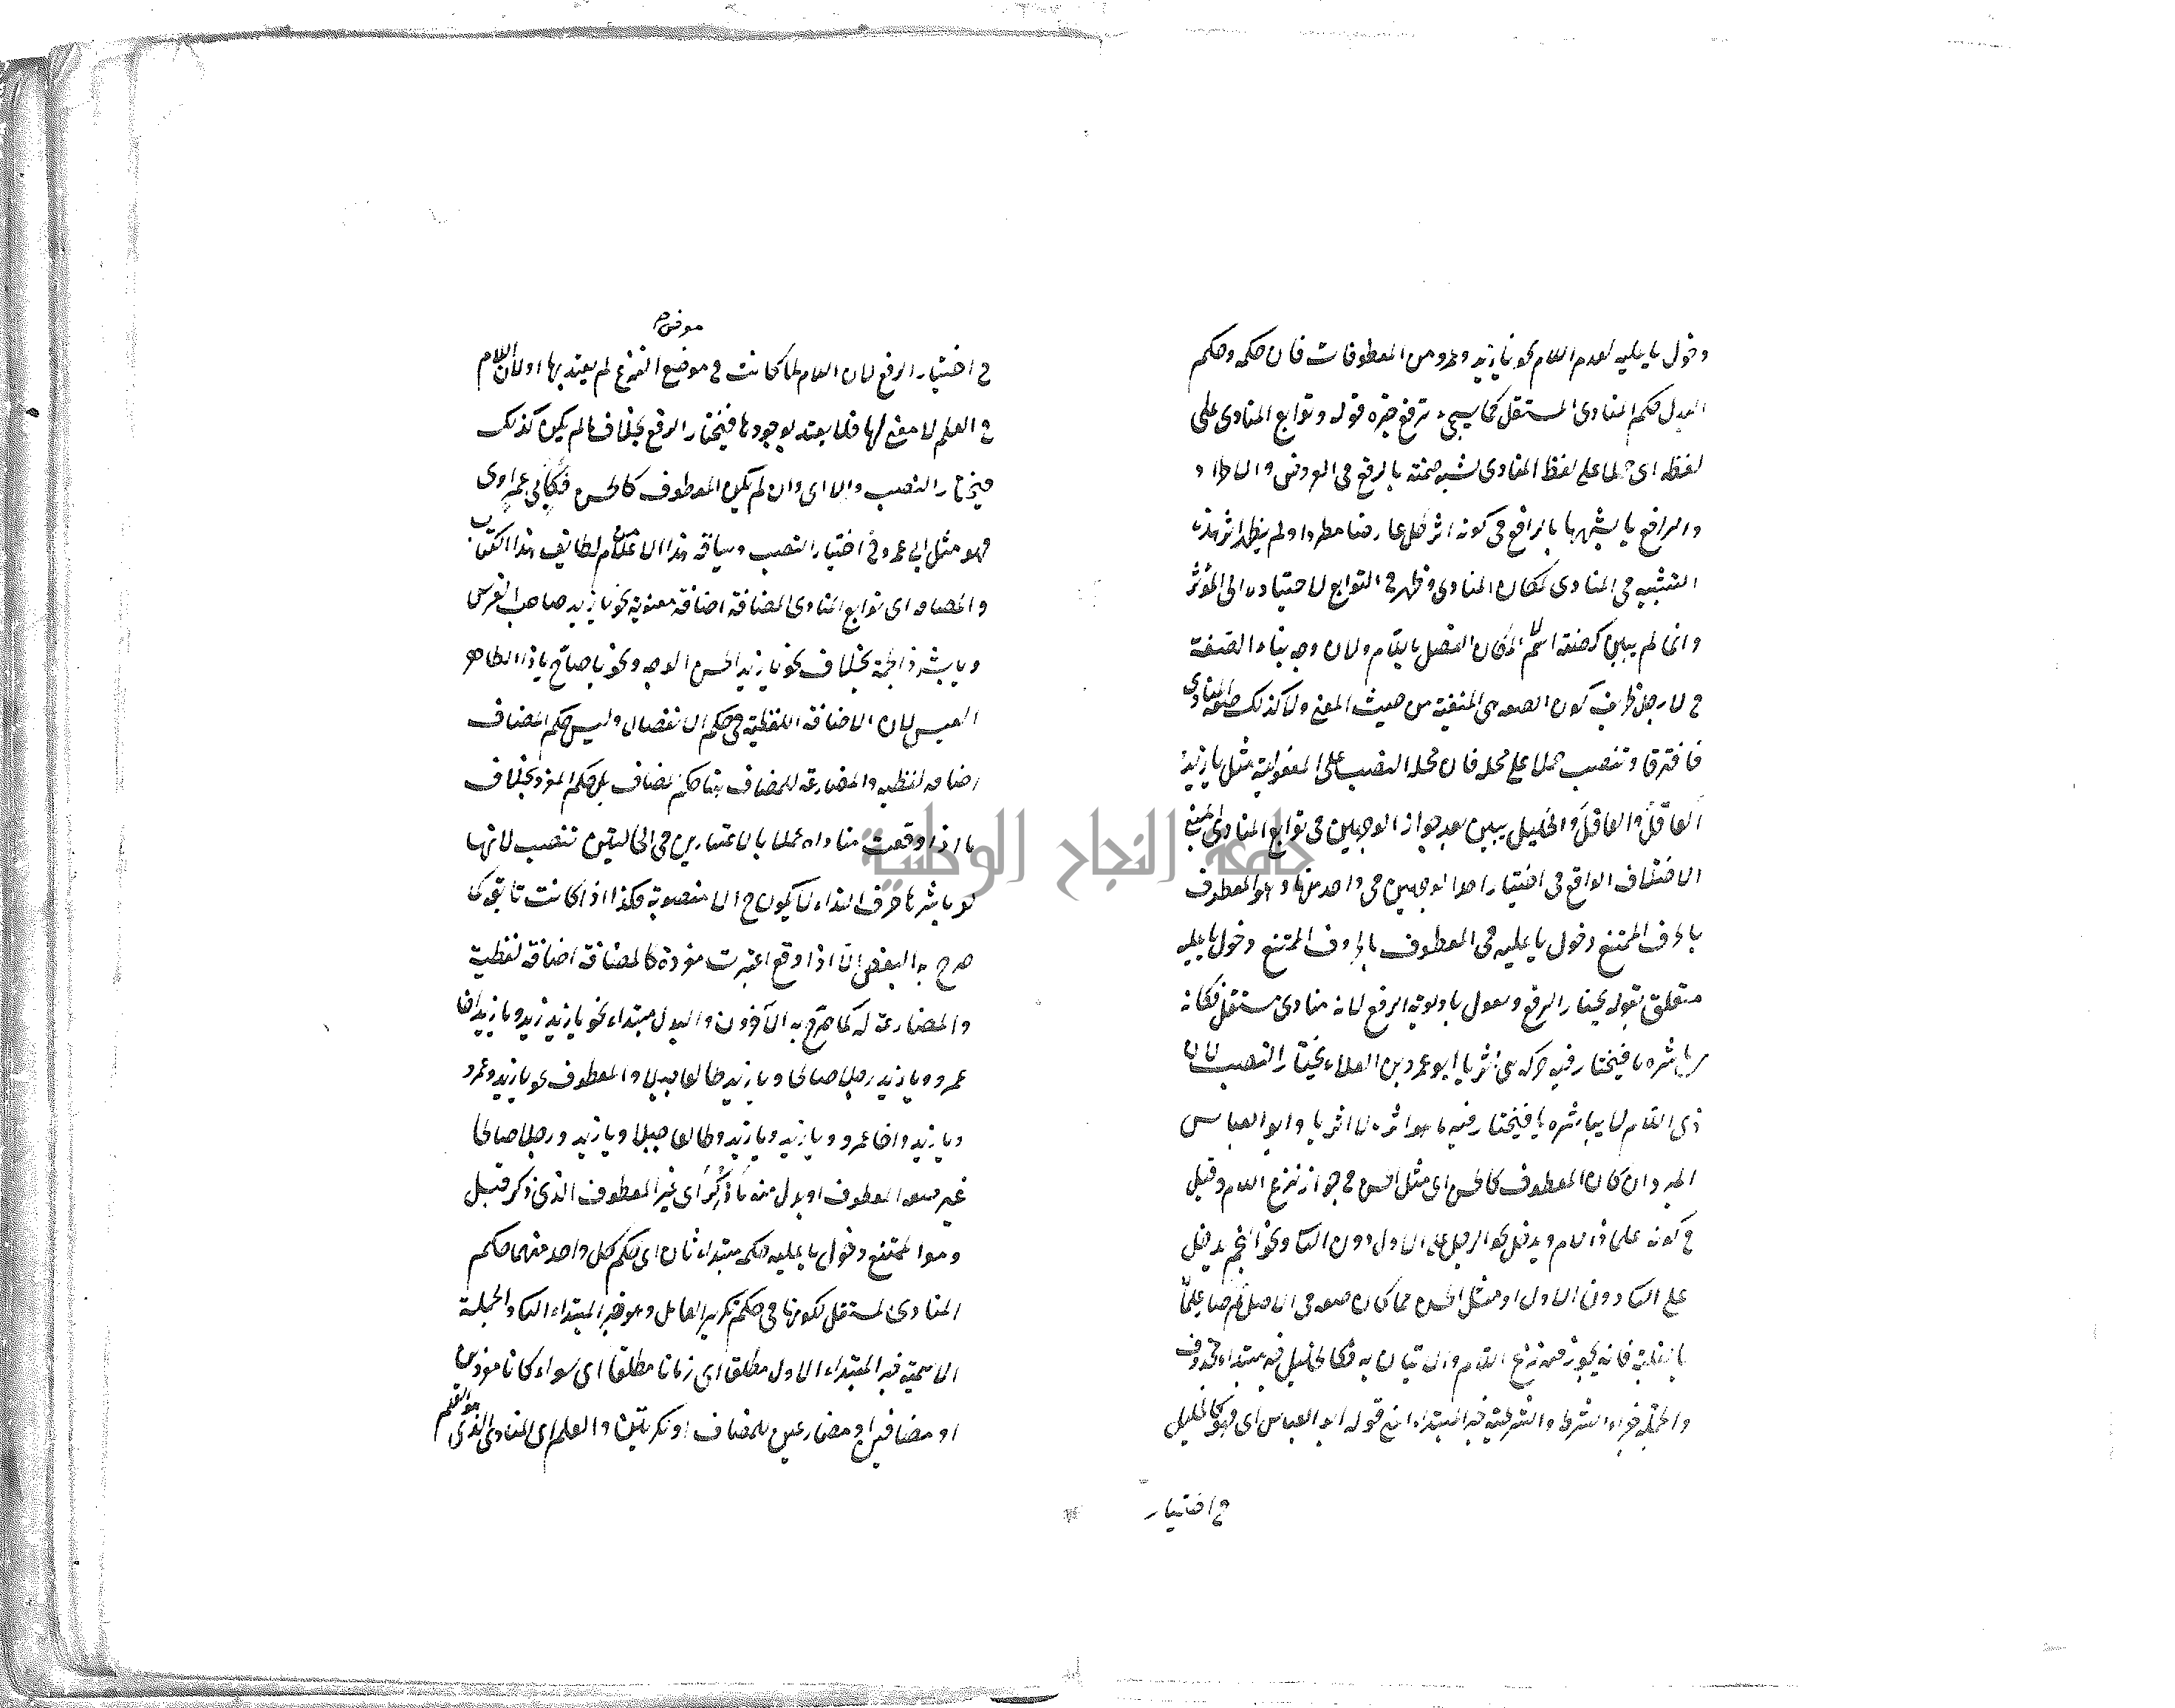 دخول يا عليه لعدم اللام نحو يا زيد وعمرو من المعطوفات فان حكمه وحكم
البدل حكم المنادى المستقل كما سيجيء ترفع خبره قوله وتوابع المنادى على
لفظه اى حملا على لفظ المنادى لشبه ضمته بالرفع فى العروض والاطراد
والرافع يا يشبهها بالرافع فى كونه اثر كل عارضا مطردا ولم يظهر اثر هذه
التشبيه فى المنادى لمكان المنادى وظهر فى التوابع لاحتياده الى المؤثر
وانما لم يبين كصفة اسم لا لمكان الفصل باللام ولان وجه بناء الصفة
فى لا رجل ظريف كون الصفة هى المنفية من حيث المعنى ولا كذلك صفة المنادى
فافترقا وتنصب حملا على محله فان محله النصب على المفعولية مثل يا زيد
العاقل والعاقل والخليل يبين بعد جواز الوجهين فى توابع المنادى المبنى
الاختلاف الواقع فى اختيار احد الوجهين فى واحد منها وهو المعطوف
بالحرف الممتنع دخول يا عليه فى المعطوف بالحروف الممتنع دخول يا عليه
متعلق بقوله يختار الرفع ويقول باولوية الرفع لانه منادى مستقل فكانه
باشره يا فيختار فيه حركة هى اثر يا ابو عمرو بن العلاء يختار النصب لان
ذى اللام لا يباشره يا فيختار فيه ما هو اثره لا اثر يا وابو العباس
المبرد ان كان المعطوف كالحسن اى مثل الحسن فى جواز نزع اللام وقيل
فى كونه على ذا لام ويدخل نحو الرجل على الاول دون الثا ونحو النجم يدخل
على الثا دون الاول او مثل الحسن مما كان صفة فى الاصل ثم صار علما
بالغلبة فانه يجوز فيه نزع اللام والاتيان به فكالخليل فيه مبتداء محذوف
والجملة جزاء الشرط والشرطية خبر المبتداء اعنى قوله ابو العباس اى فهو كالخليل
فى اختيار
موضع
فى اختيار الرفع لان اللام لما كانت فى موضع النزع لم يعتد بها او لان اللام
فى العلم لا معنى لها فلا يعتد بوجودها فيختار الرفع بخلاف ما لم يكن كذلك
فيختار النصب والا اى وان لم يكن المعطوف كالحسن فكابى عمرو اى
فهو مثل ابى عمرو فى اختيار النصب وسياقة هذا الاعلام من لطائف هذا الكتاب
والمضافة اى توابع المنادى المضافة اضافة معنوية نحو يا زيد صاحب الفرس
ويا بشر ذا الجمة بخلاف نحو يا زيد الحسن الوجه ونحو يا صالح يا ذا الطاهر
العيس لان الاضافة اللفظية فى حكم الانفصال وليس حكم المضاف
اضافة لفظية والمضارعة للمضاف هنا حكم المضاف بل حكم المفرد بخلاف
ما اذا وقعت مناداه عملا بالاعتبارين فى الحالتين تنصب لانها
لو باشرها حرف النداء لا يكون الا منصوبة فكذا اذا كانت تابعة كما
صرح به البعض لانا اذا وقع اعتبرت مفردة كالمضافة اضافة لفظية
والمضارعة له كما صرح به الآخرون والبدل مبتداء نحو يا زيد زيد ويا زيد اخا
عمرو ويا زيد رجلا صالحا ويا زيد طالعا جبلا والمعطوف نحو يا زيد وعمرو
ويا زيد واخا عمرو ويا زيد ويا زيد وطالعا جبلا ويا زيد ورجلا صالحا
غير صفة المعطوف او بدل منه ما ذكر اى غير المعطوف الذى ذكر قبل
وهو الممتنع دخول يا عليه حكمه مبتداء ثان اى حكم كل واحد منهما حكم
المنادى المستقل لكونها فى حكم تكرير العامل وهو خبر المبتداء الثا والجملة
الاسمية خبر المبتداء الاول مطلقا اى زمانا مطلقا اى سواء كانا مفردين
او مضافين او مضارعين للمضاف او نكرتين والعلم اى المنادى الذى هو العلم